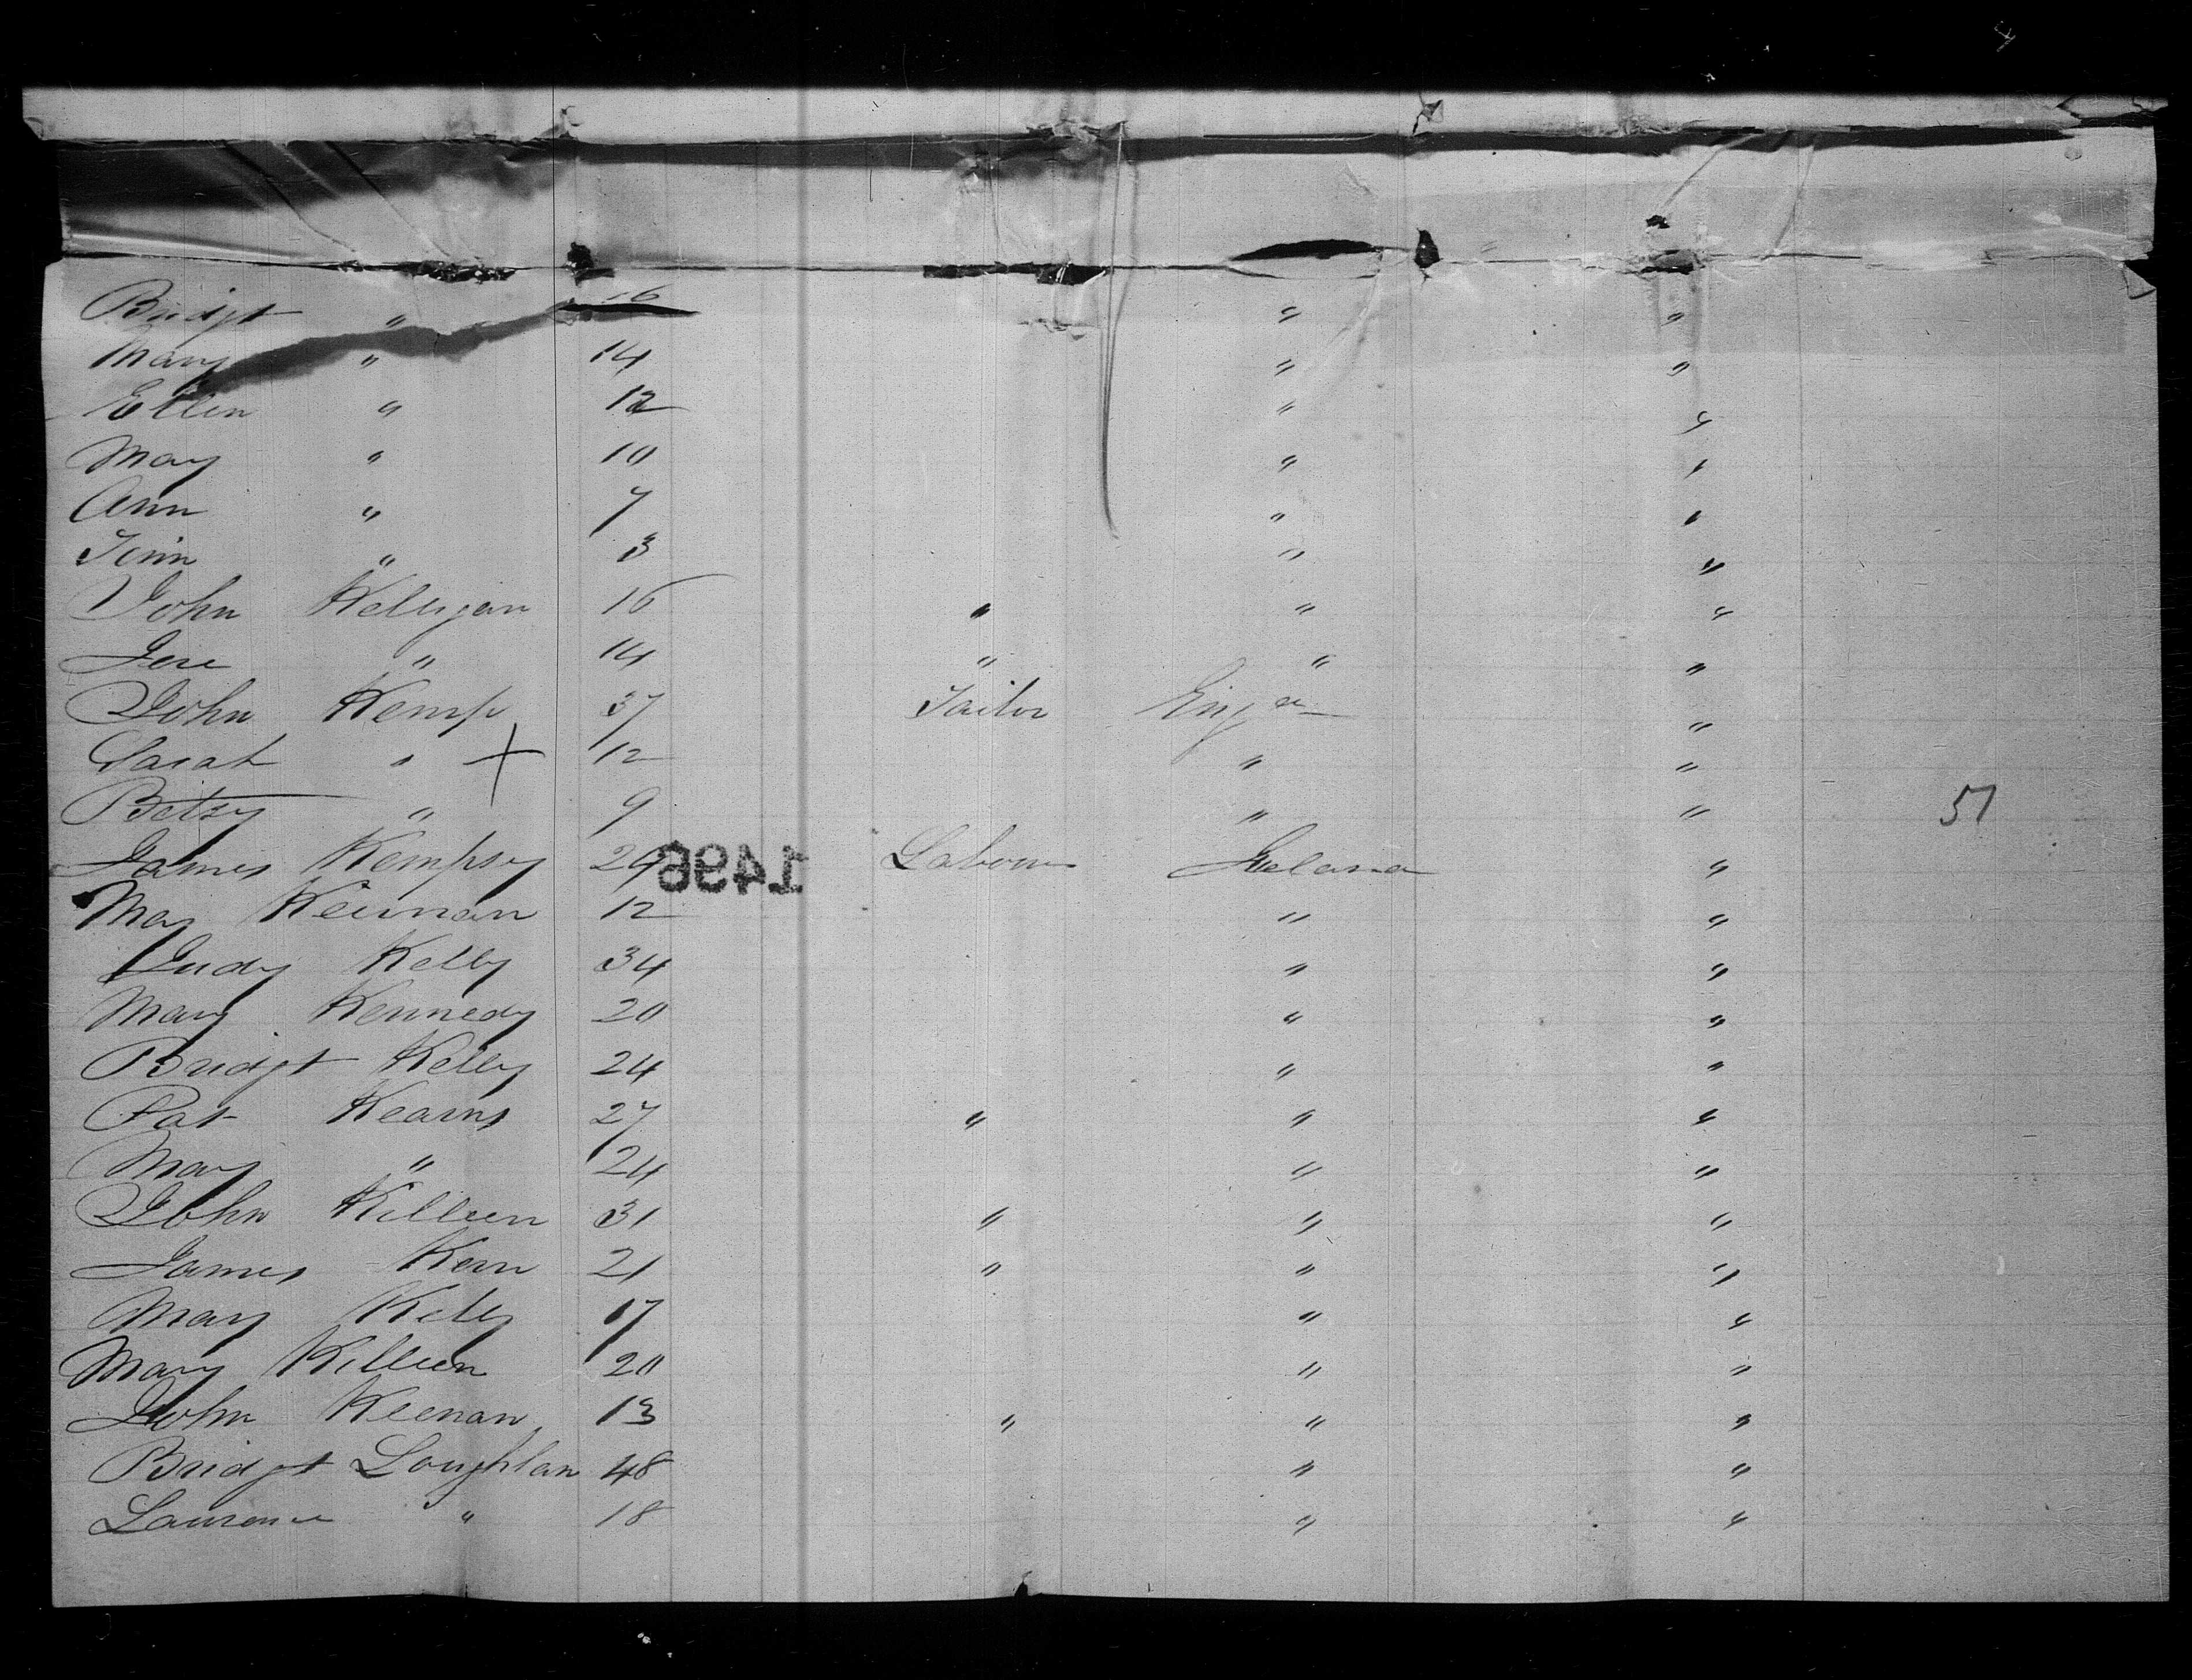 Bridgt " 16 " "
Mary " 14 " "
Ellen " 12 " "
May " 10 " "
Ann " 7 " "
" 3 " "
John Kelligan 16 " " "
Jere " 14 " " "
John Kemp 37 Tailor "
Sarah " + 12 " "
Betsy " 9 " " 51
James Kempsey 29 Labour "
1496
May Keirnan 12 " "
Judy Kelly 34 " "
Mary Kennedy 20 " "
Bridgt Kelly 24 " "
Pat Kearns 27 " " "
Mary " 24 " "
John Killeen 31 " " "
James Kern 21 " " "
Mary Kelly 17 " "
Mary Killeen 20 " "
John Keenan 13 " " "
Bridgt Loughlan 48 " "
Laurence " 18 " "